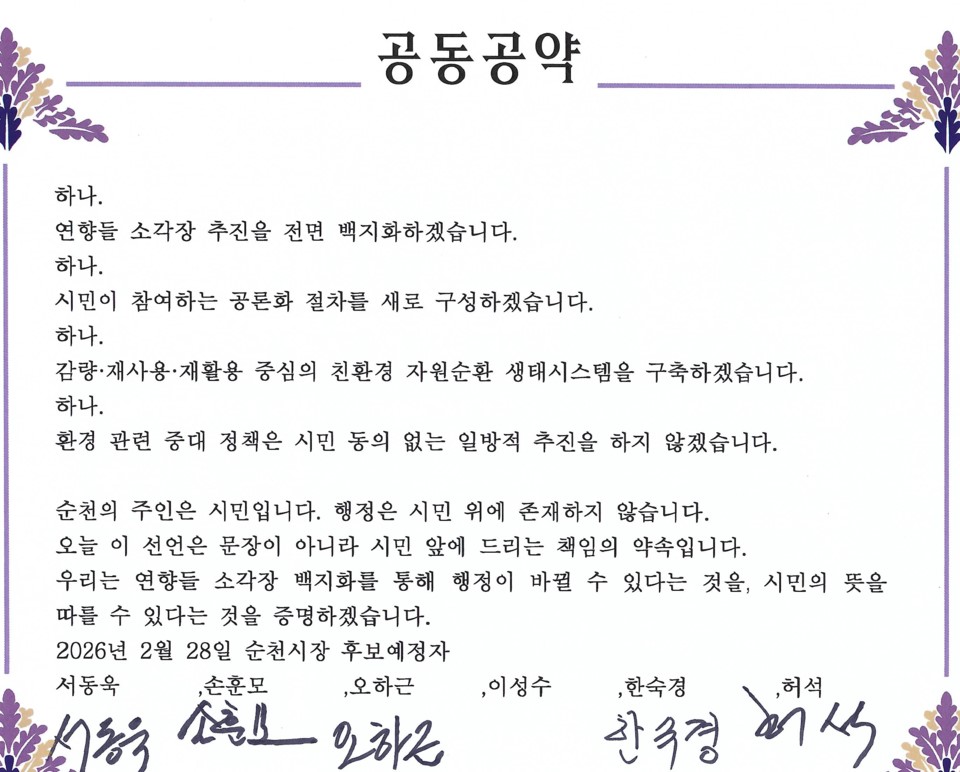 공동공약
하나.
연향들 소각장 추진을 전면 백지화하겠습니다.
하나.
시민이 참여하는 공론화 절차를 새로 구성하겠습니다.
하나.
감량·재사용·재활용 중심의 친환경 자원순환 생태시스템을 구축하겠습니다.
하나.
환경 관련 중대 정책은 시민 동의 없는 일방적 추진을 하지 않겠습니다.
순천의 주인은 시민입니다. 행정은 시민 위에 존재하지 않습니다.
오늘 이 선언은 문장이 아니라 시민 앞에 드리는 책임의 약속입니다.
우리는 연향들 소각장 백지화를 통해 행정이 바뀔 수 있다는 것을, 시민의 뜻을
따를 수 있다는 것을 증명하겠습니다.
2026년 2월 28일 순천시장 후보예정자
서동욱 ,손훈모 ,오하근 ,이성수 ,한숙경 ,허석
서동욱 손훈모 오하근 한숙경 허석